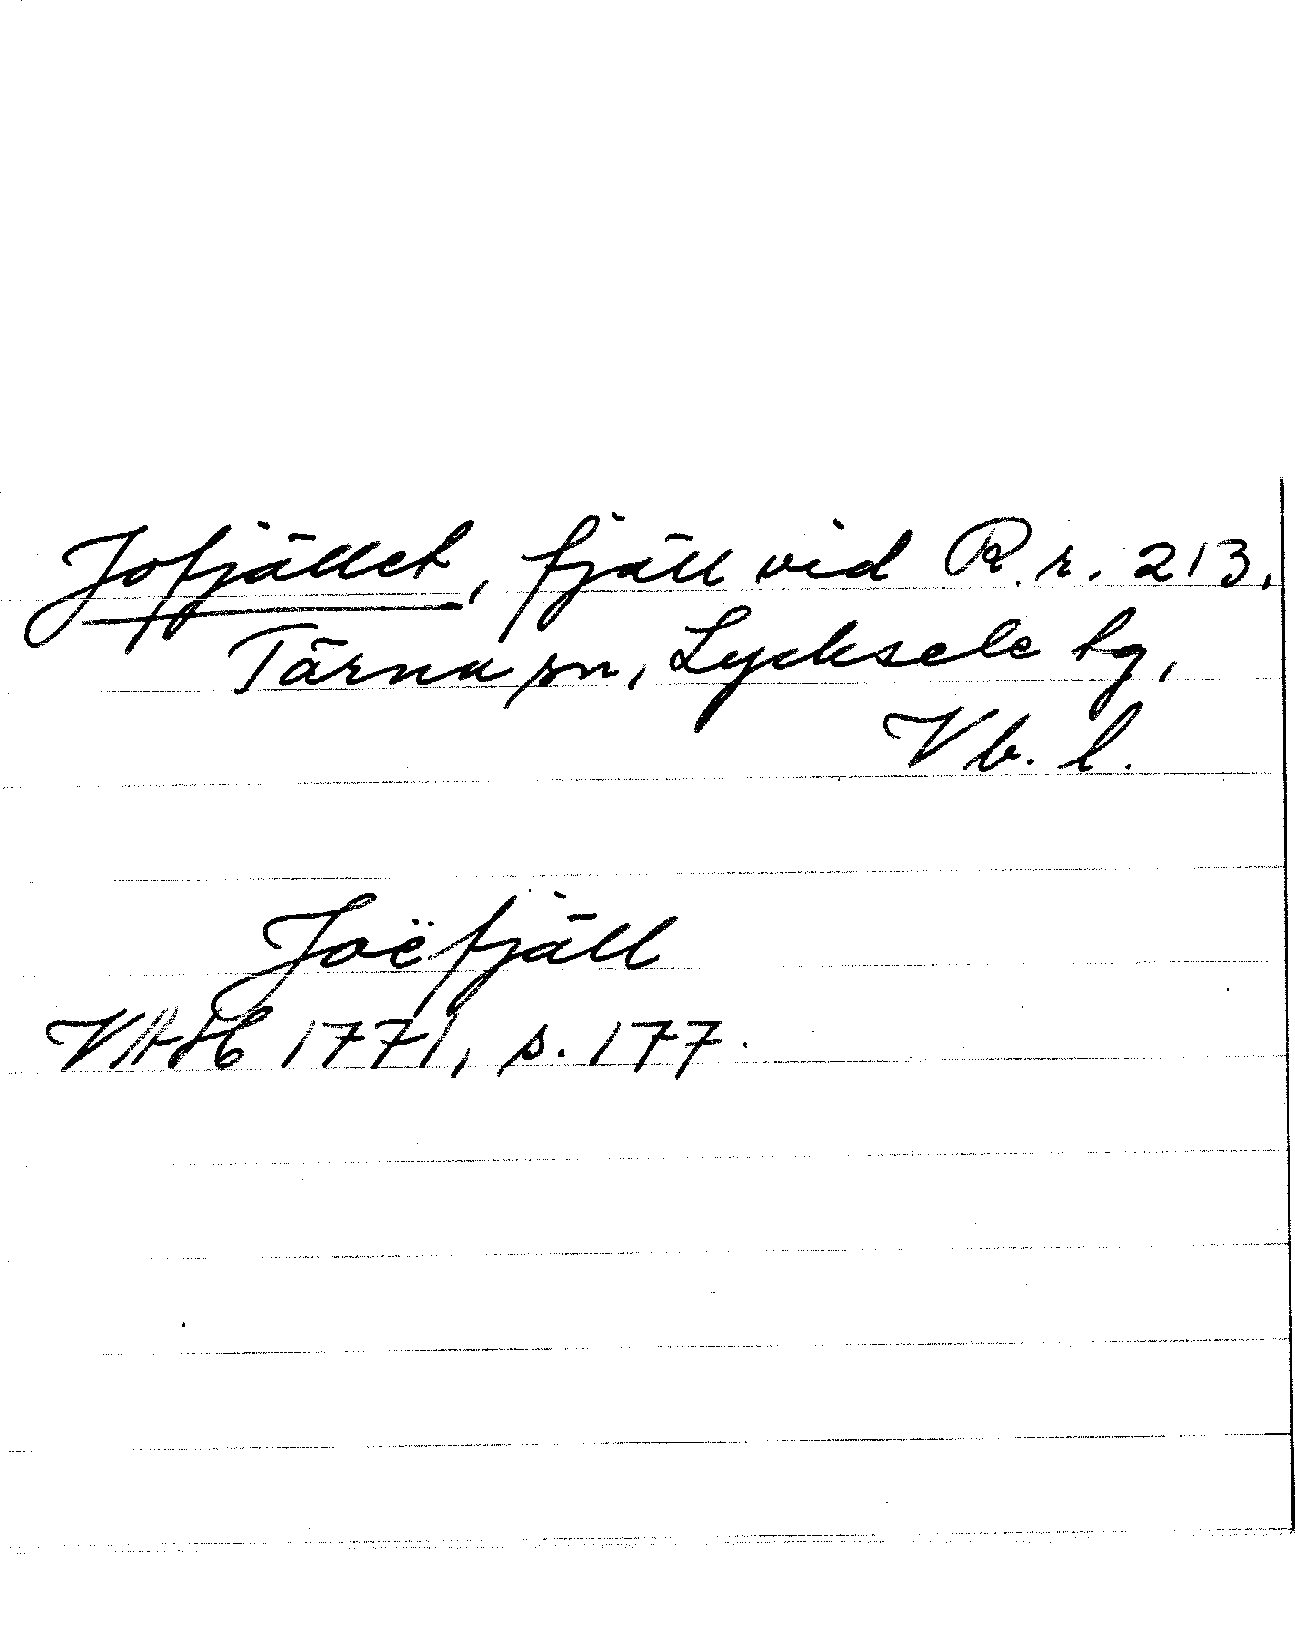 Jofjället, fjäll vid R.r. 213,
Tärna sn, Lycksele tg,
Vb. l.
Joëfjäll
VAH 1771, s. 177.